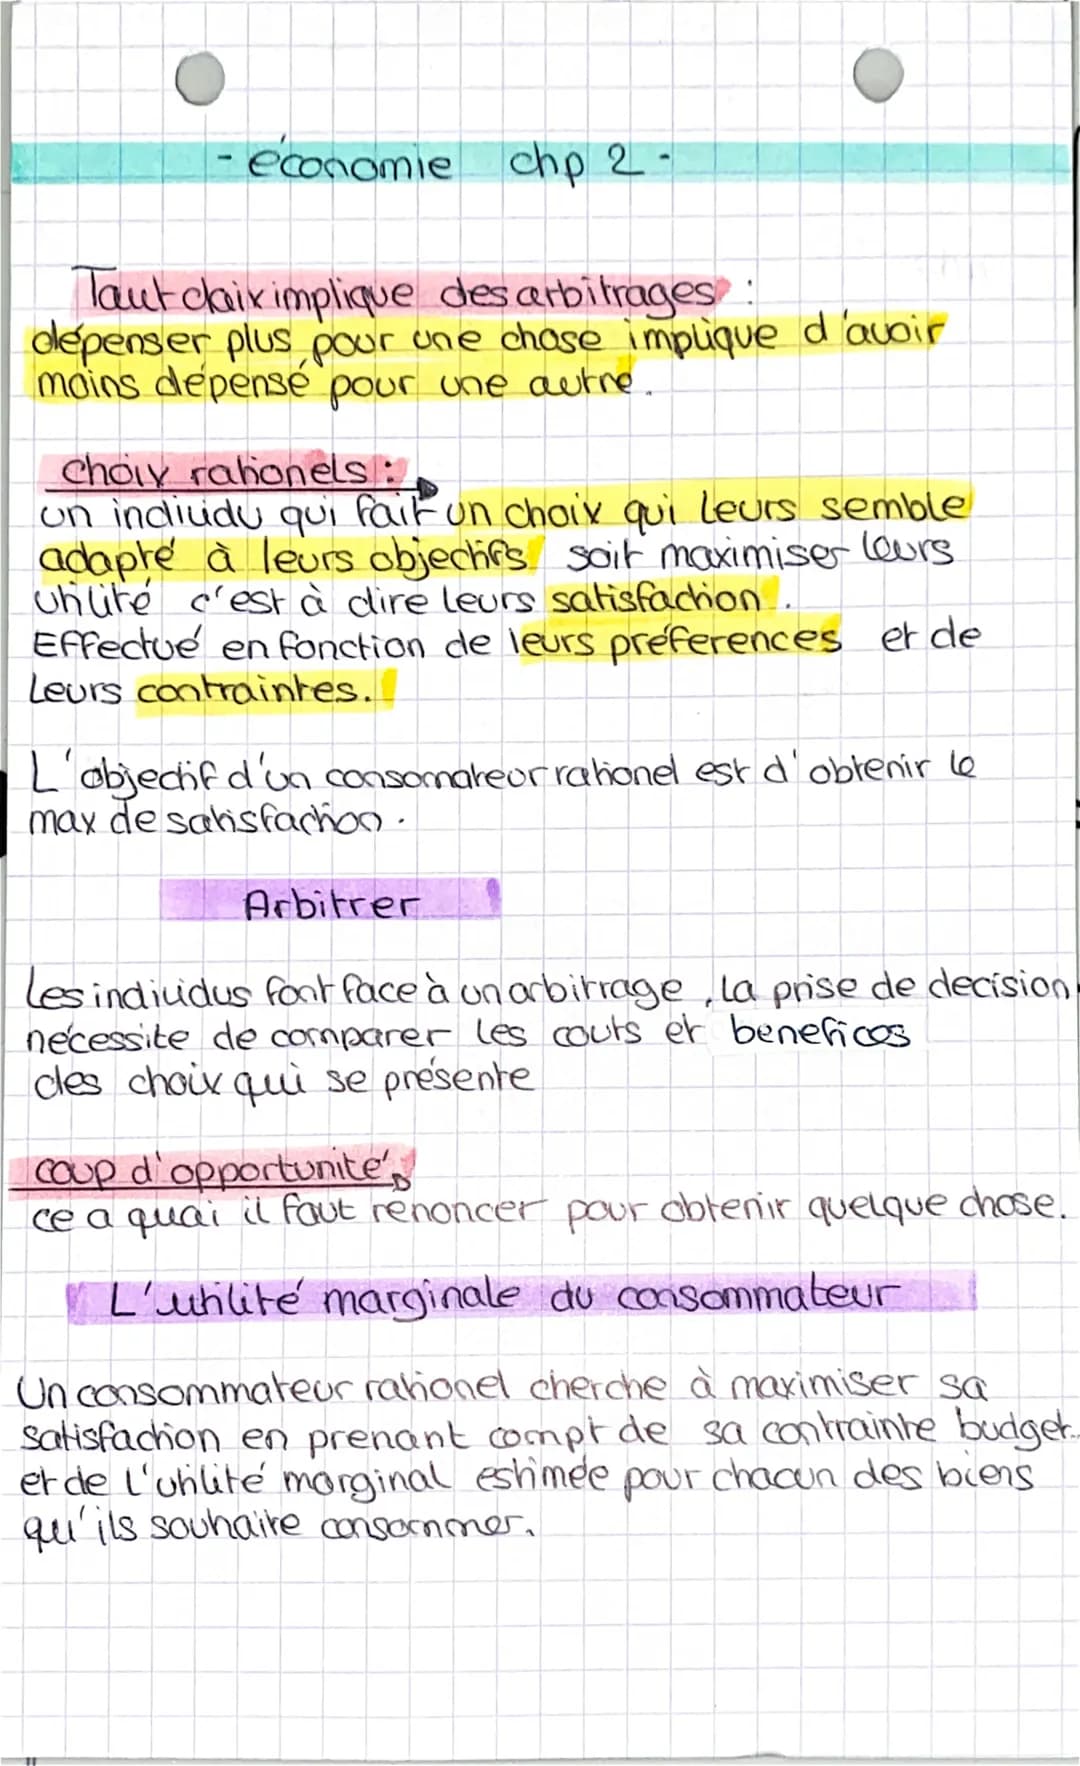 - économie chp 2 -
Tout choix implique des arbitrages :
dépenser plus pour une chose implique d'avoir
moins dépensé pour une autre.
choix rationels :
un individu qui fait un choix qui leurs semble
adapté à leurs objectifs soit maximiser leurs
utilité c'est à dire leurs satisfaction.
Effectué en fonction de leurs préferences et de
Leurs contraintes.
L'objectif d'un consomateur rationel est d'obtenir le
max de satisfaction.
Arbitrer
Les individus font face à un arbitrage, la prise de decision
nécessite de comparer les couts et benefices
des choix qui se présente
coup d'opportunité
ce a quoi il faut renoncer pour obtenir quelque chose.
L'utilité marginale du consommateur
Un consommateur rationel cherche à maximiser sa
satisfaction en prenant compt de sa contrainte budget..
et de l'utilité marginal estimée pour chacun des biens
qu'ils souhaite consommer.